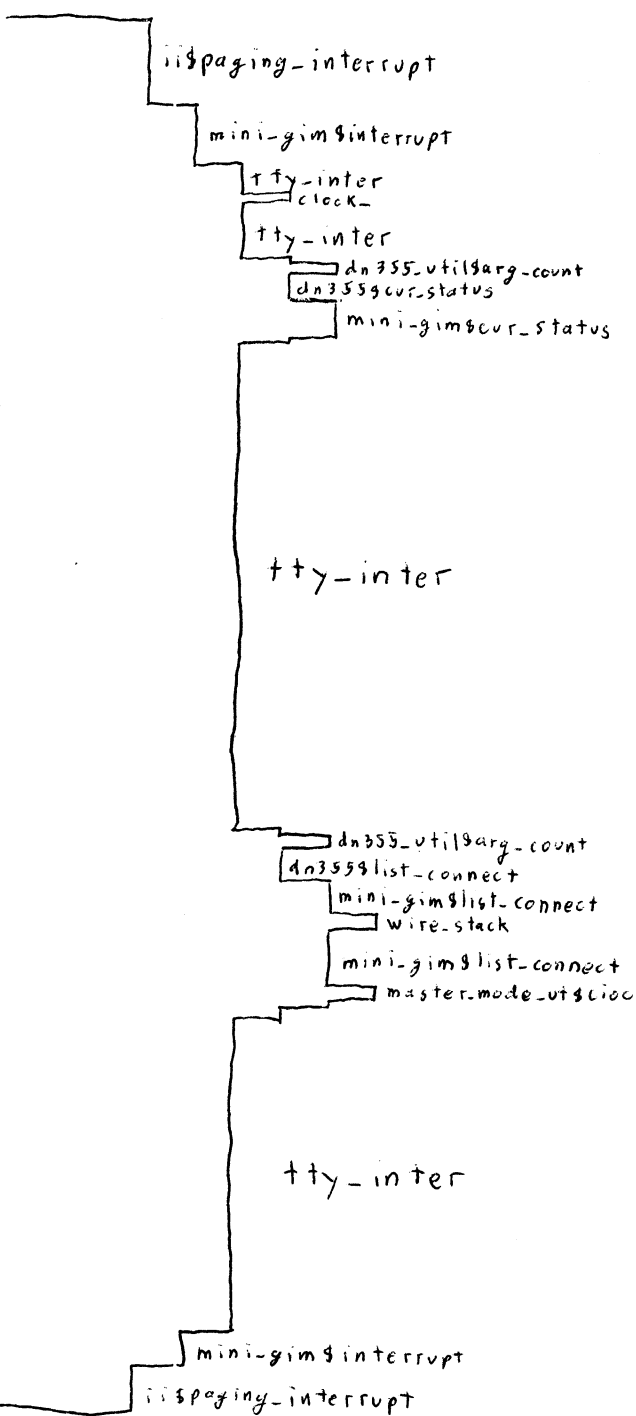 ii$paging_interrupt
mini_gim$interrupt
tty_inter
clock_
tty_inter
dn355_util$arg_count
dn355$cur_status
mini_gim$cur_status
tty_inter
dn355_util$arg_count
dn355$list_connect
mini_gim$list_connect
wire_stack
mini_gim$list_connect
master_mode_ut$cioc
tty_inter
mini_gim$interrupt
ii$paging_interrupt